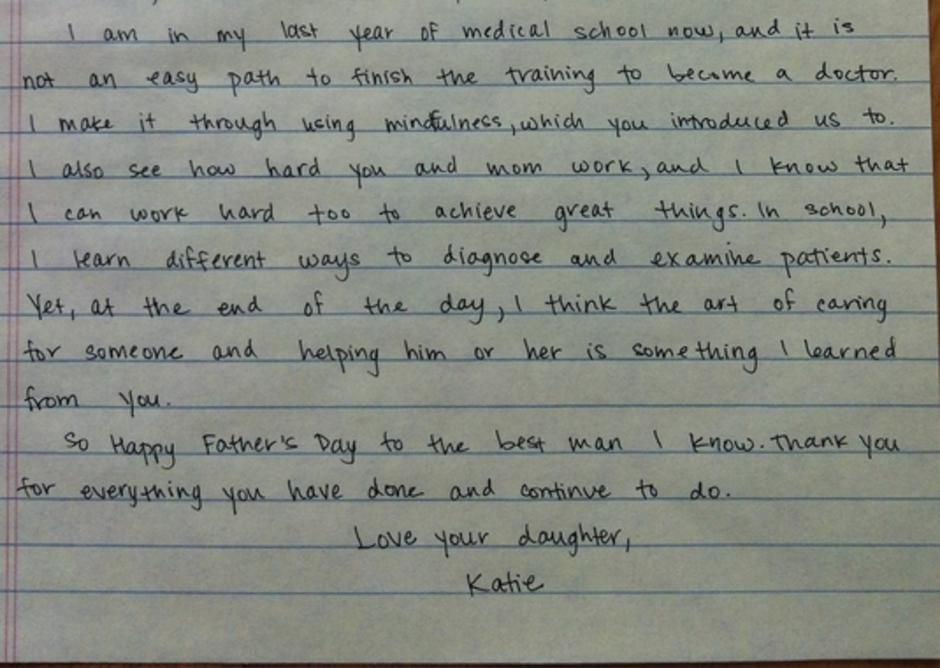 I am in my last year of medical school now, and it is
not an easy path to finish the training to become a doctor.
I make it through using mindfulness, which you introduced us to.
I also see how hard you and mom work, and I know that
I can work hard too to achieve great things. In school,
I learn different ways to diagnose and examine patients.
Yet, at the end of the day, I think the art of caring
for someone and helping him or her is something I learned
from you.
So Happy Father's Day to the best man I know. Thank you
for everything you have done and continue to do.
Love your daughter,
Katie